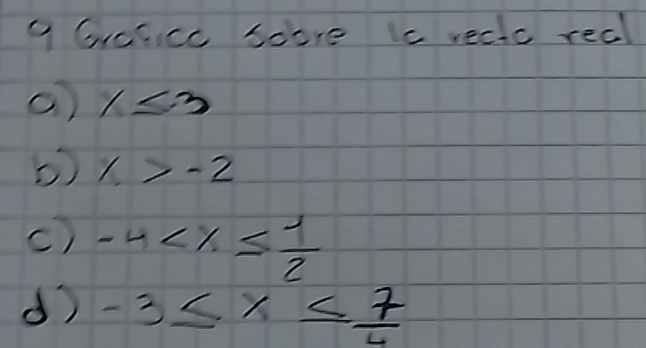 9 Grafica sobre la recta real
a) x ≤ 3
b) x > -2
c) -4 < x ≤ 1/2
d) -3 ≤ x ≤ 7/4